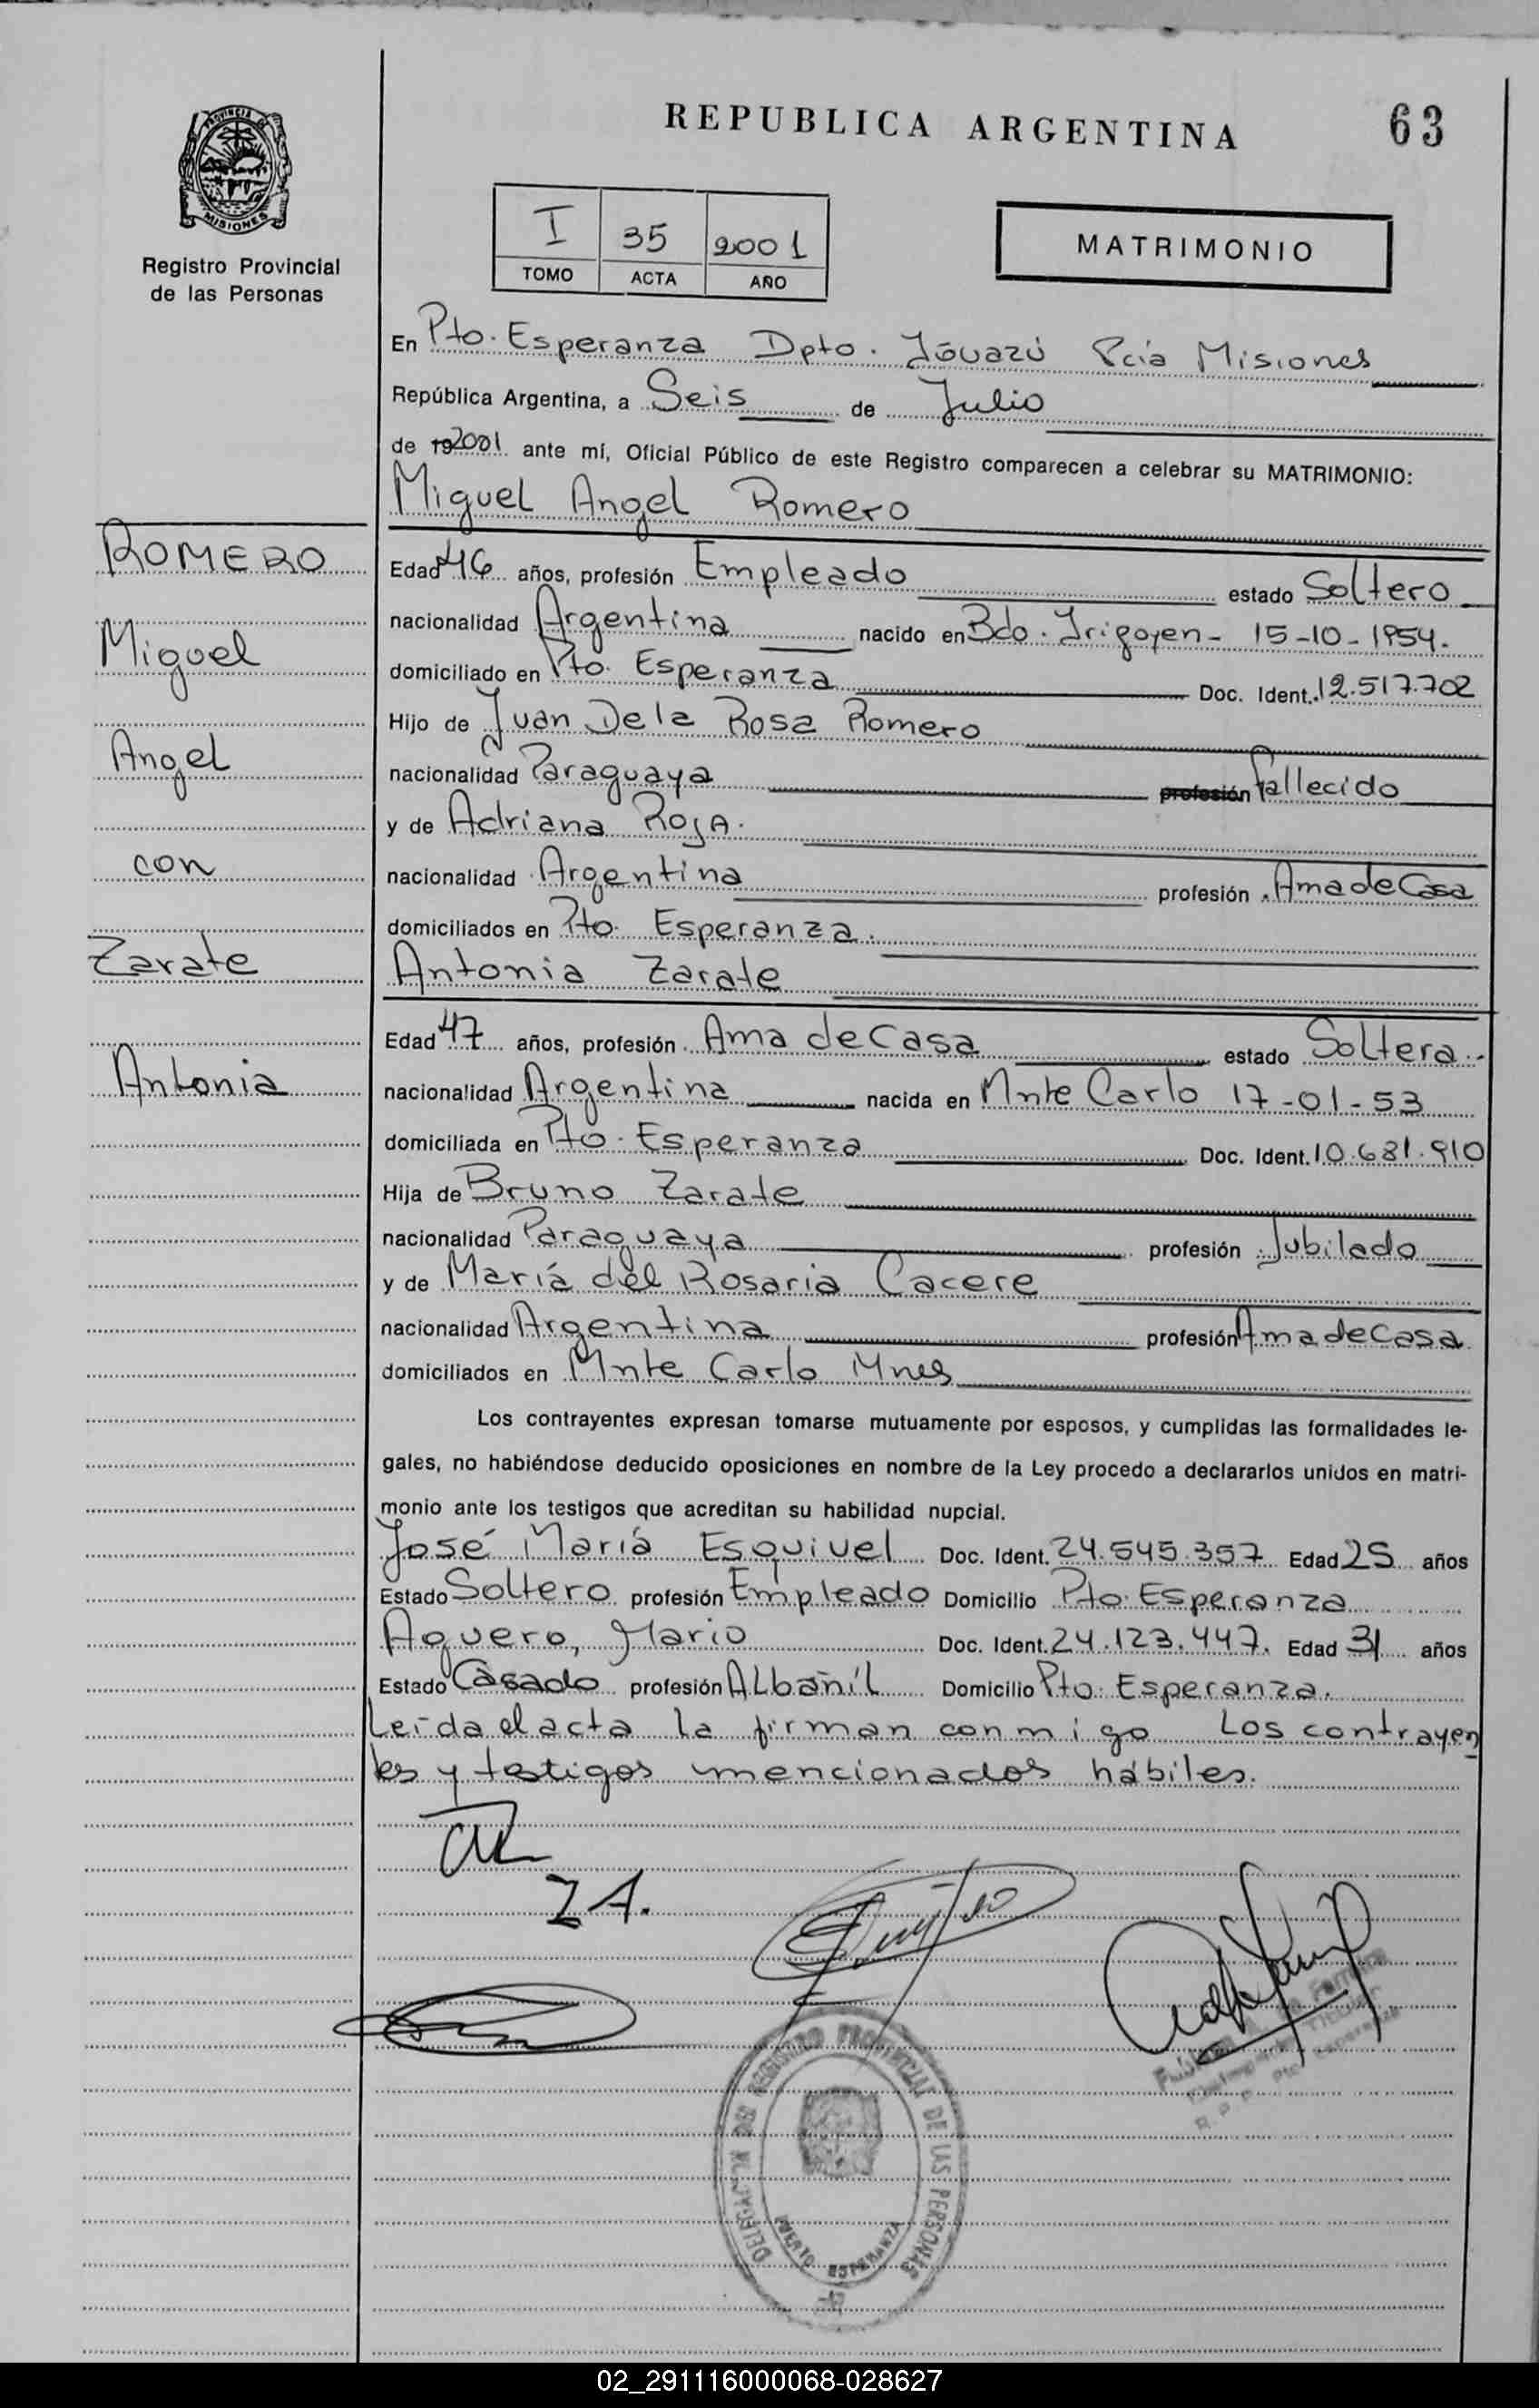 REPUBLICA ARGENTINA
63
PROVINCIA DE
MISIONES
Registro Provincial
de las Personas
I 35 2001
TOMO ACTA AÑO
MATRIMONIO
En Pto. Esperanza Dpto. Iguazú Pcia Misiones
República Argentina, a Seis de Julio
de 192001 ante mí, Oficial Público de este Registro comparecen a celebrar su MATRIMONIO:
Miguel Angel Romero
ROMERO
Miguel
Angel
con
Zarate
Antonia
Edad 46 años, profesión Empleado estado Soltero
nacionalidad Argentina nacido en Bdo. Irigoyen - 15-10-1954.
domiciliado en Pto. Esperanza Doc. Ident. 12.517.702
Hijo de Juan De la Rosa Romero
nacionalidad Paraguaya profesión fallecido
y de Adriana Roja.
nacionalidad Argentina profesión Ama de Casa
domiciliados en Pto. Esperanza.
Antonia Zarate
Edad 47 años, profesión Ama de Casa estado Soltera.-
nacionalidad Argentina nacida en Mnte Carlo 17-01-53
domiciliada en Pto. Esperanza Doc. Ident. 10.681.910
Hija de Bruno Zarate
nacionalidad Paraguaya profesión Jubilado
y de María del Rosaria Cacere
nacionalidad Argentina profesión Ama de Casa
domiciliados en Mnte Carlo Mnes
Los contrayentes expresan tomarse mutuamente por esposos, y cumplidas las formalidades le-
gales, no habiéndose deducido oposiciones en nombre de la Ley procedo a declararlos unidos en matri-
monio ante los testigos que acreditan su habilidad nupcial.
José María Esquivel Doc. Ident. 24.545.357 Edad 25 años
Estado Soltero profesión Empleado Domicilio Pto. Esperanza
Aguero, Mario Doc. Ident. 24.123.447. Edad 31 años
Estado Casado profesión Albañil Domicilio Pto. Esperanza.
Leída el acta la firman conmigo Los contrayen
tes y testigos mencionados hábiles.
Z A.
REGISTRO PROVINCIAL DE LAS PERSONAS
PUERTO ESPERANZA
02_291116000068-028627